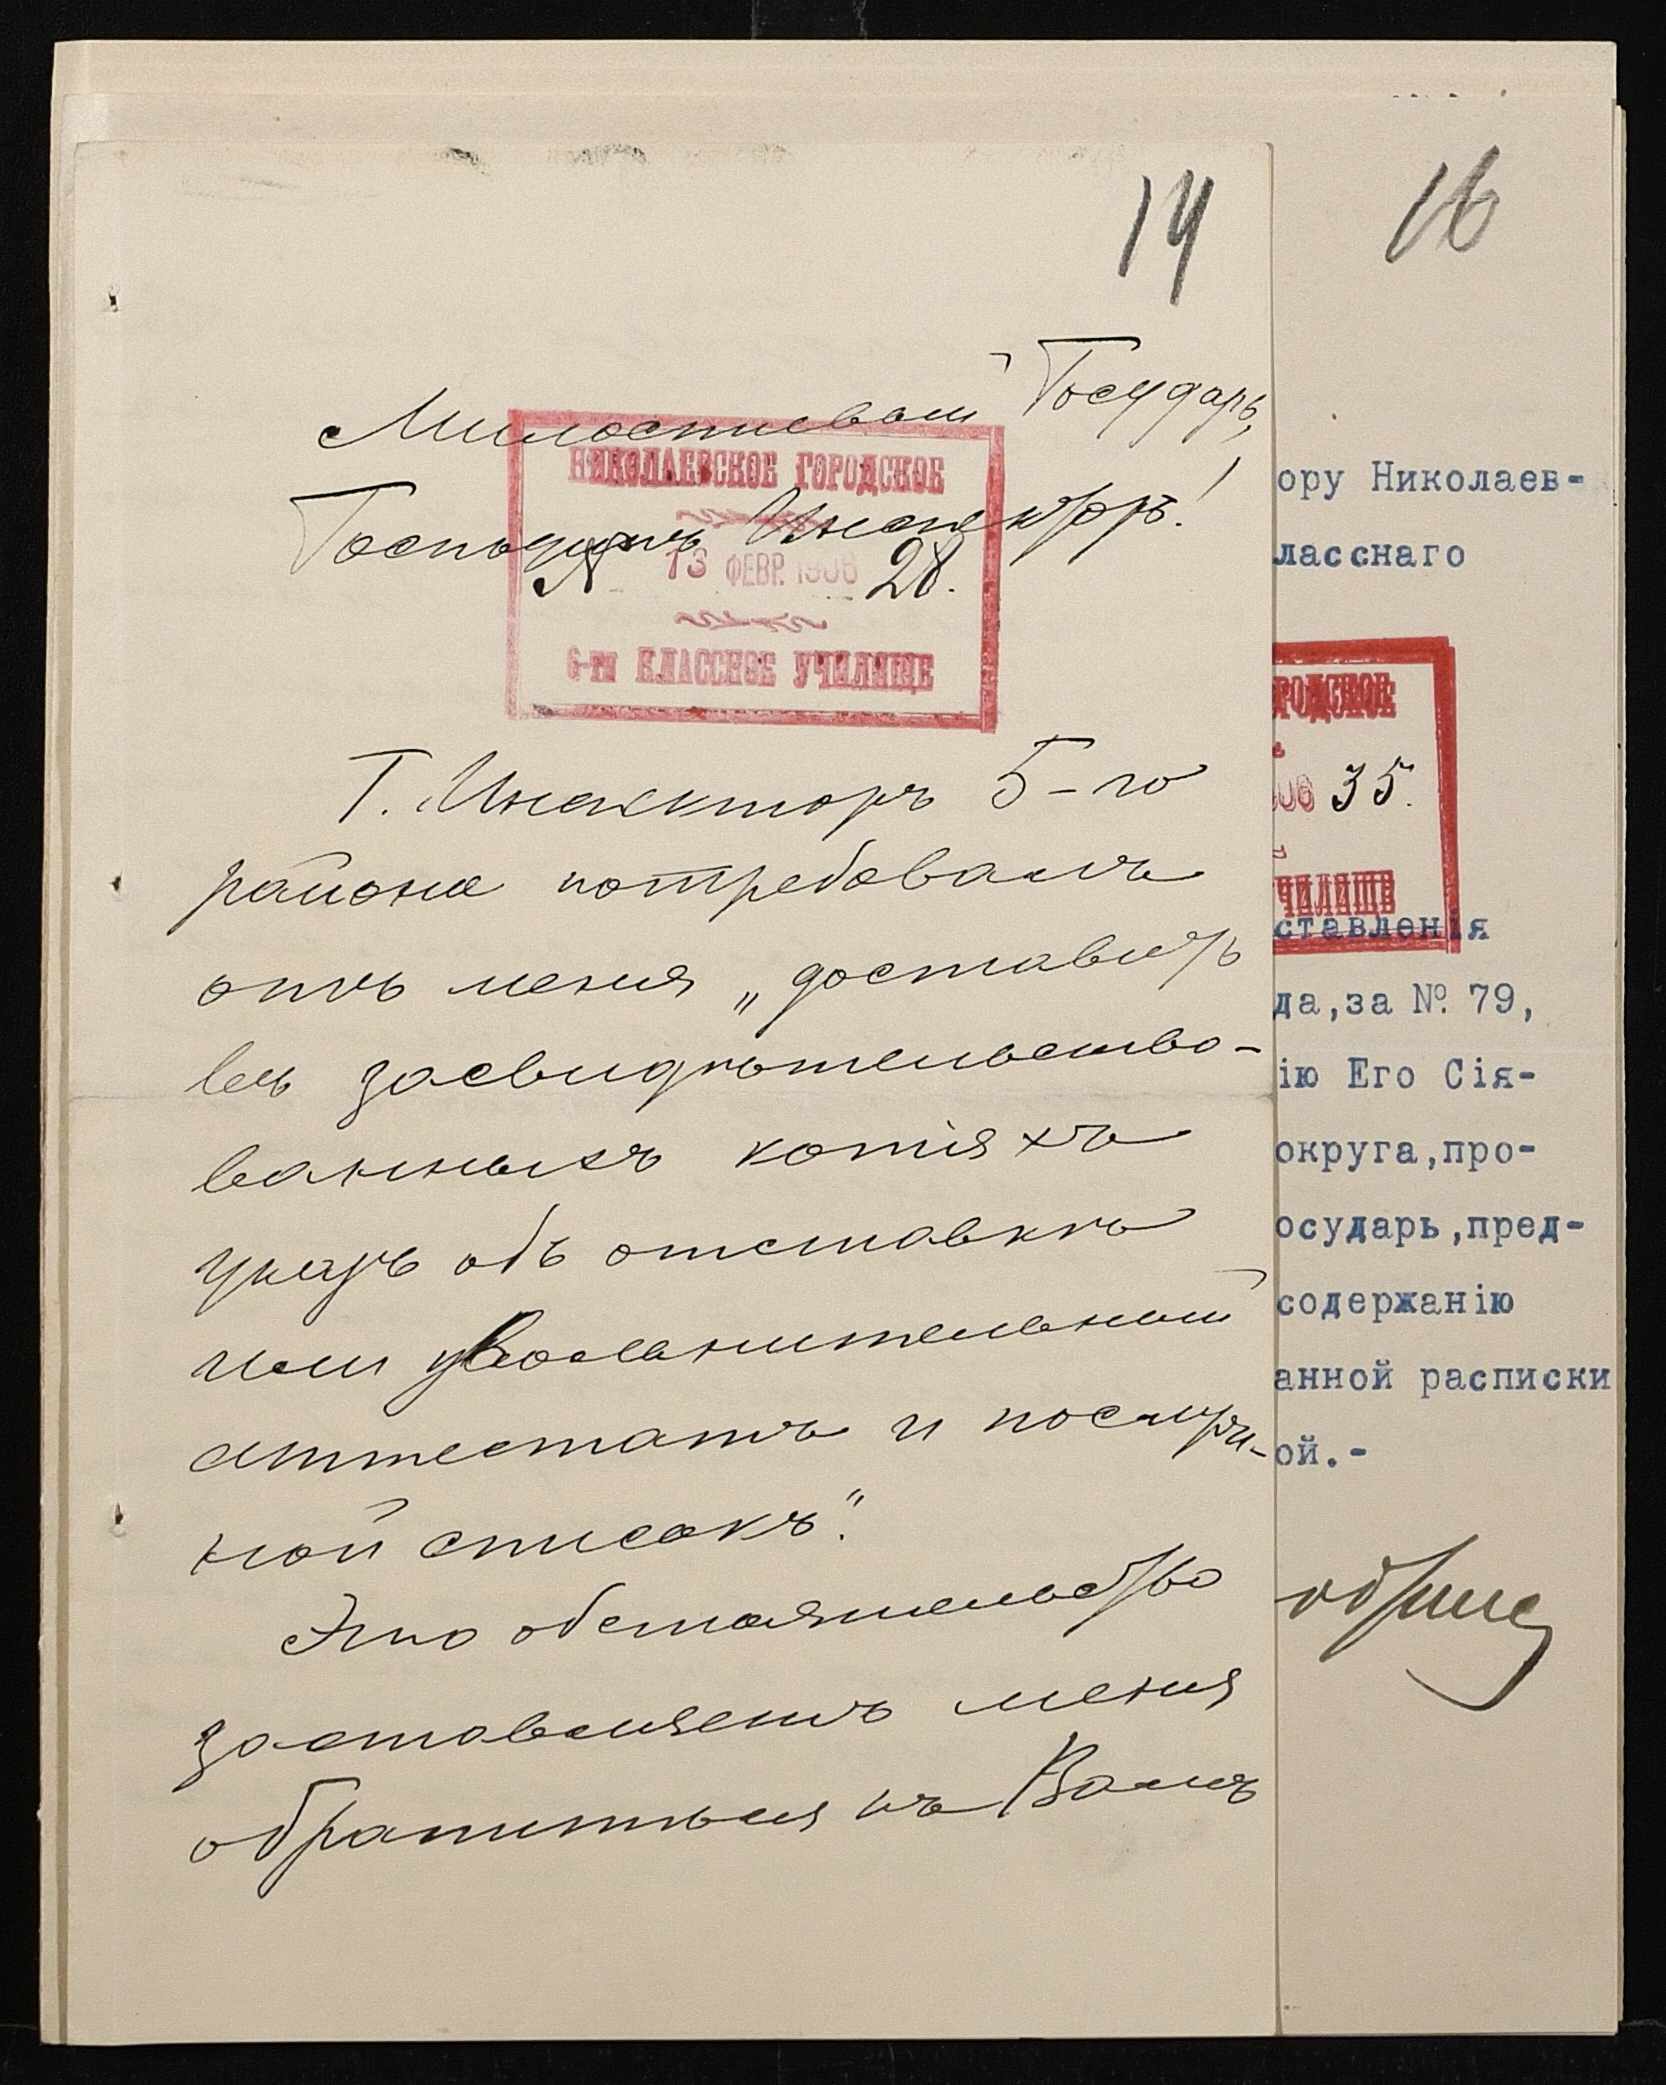 14
16
Милостивый Государь,
Господинъ Инспекторъ!
НИКОЛАЕВСКОЕ ГОРОДСКОЕ
№ 13 ФЕВР. 1906 28.
6-ти КЛАССНОЕ УЧИЛИЩЕ
Г. Инспекторъ 5-го
района потребовалъ
отъ меня „доставить
въ засвидѣтельство-
ванныхъ копіяхъ
указъ объ отставкѣ
или увольнительный
аттестатъ и послуж-
ной списокъ".
Это обстоятельство
заставляетъ меня
обратиться къ Вамъ
ору Николаев-
ласснаго
РОДСКОЕ
06 35.
ЧИЛИЩЕ
ставленія
да,за № 79,
ію Его Сія-
округа,про-
осударь,пред-
содержанію
анной расписки
ой.-